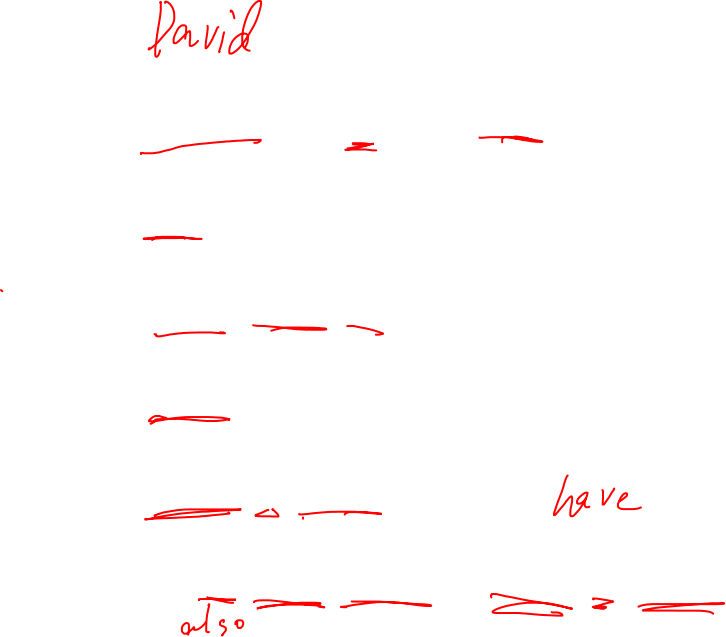 David
have
also